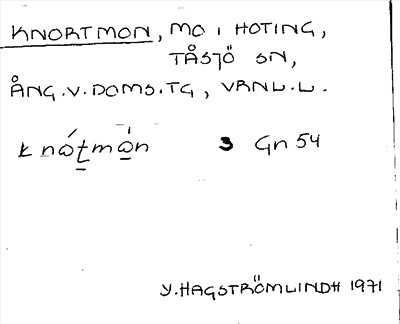 KNORTMON, MO I HOTING,
TÅSJÖ SN,
ÅNG.V.DOMS.TG, VRNL.L.
knót̲mò̲n 3 Gn 54
Y. HAGSTRÖMLINDH 1971